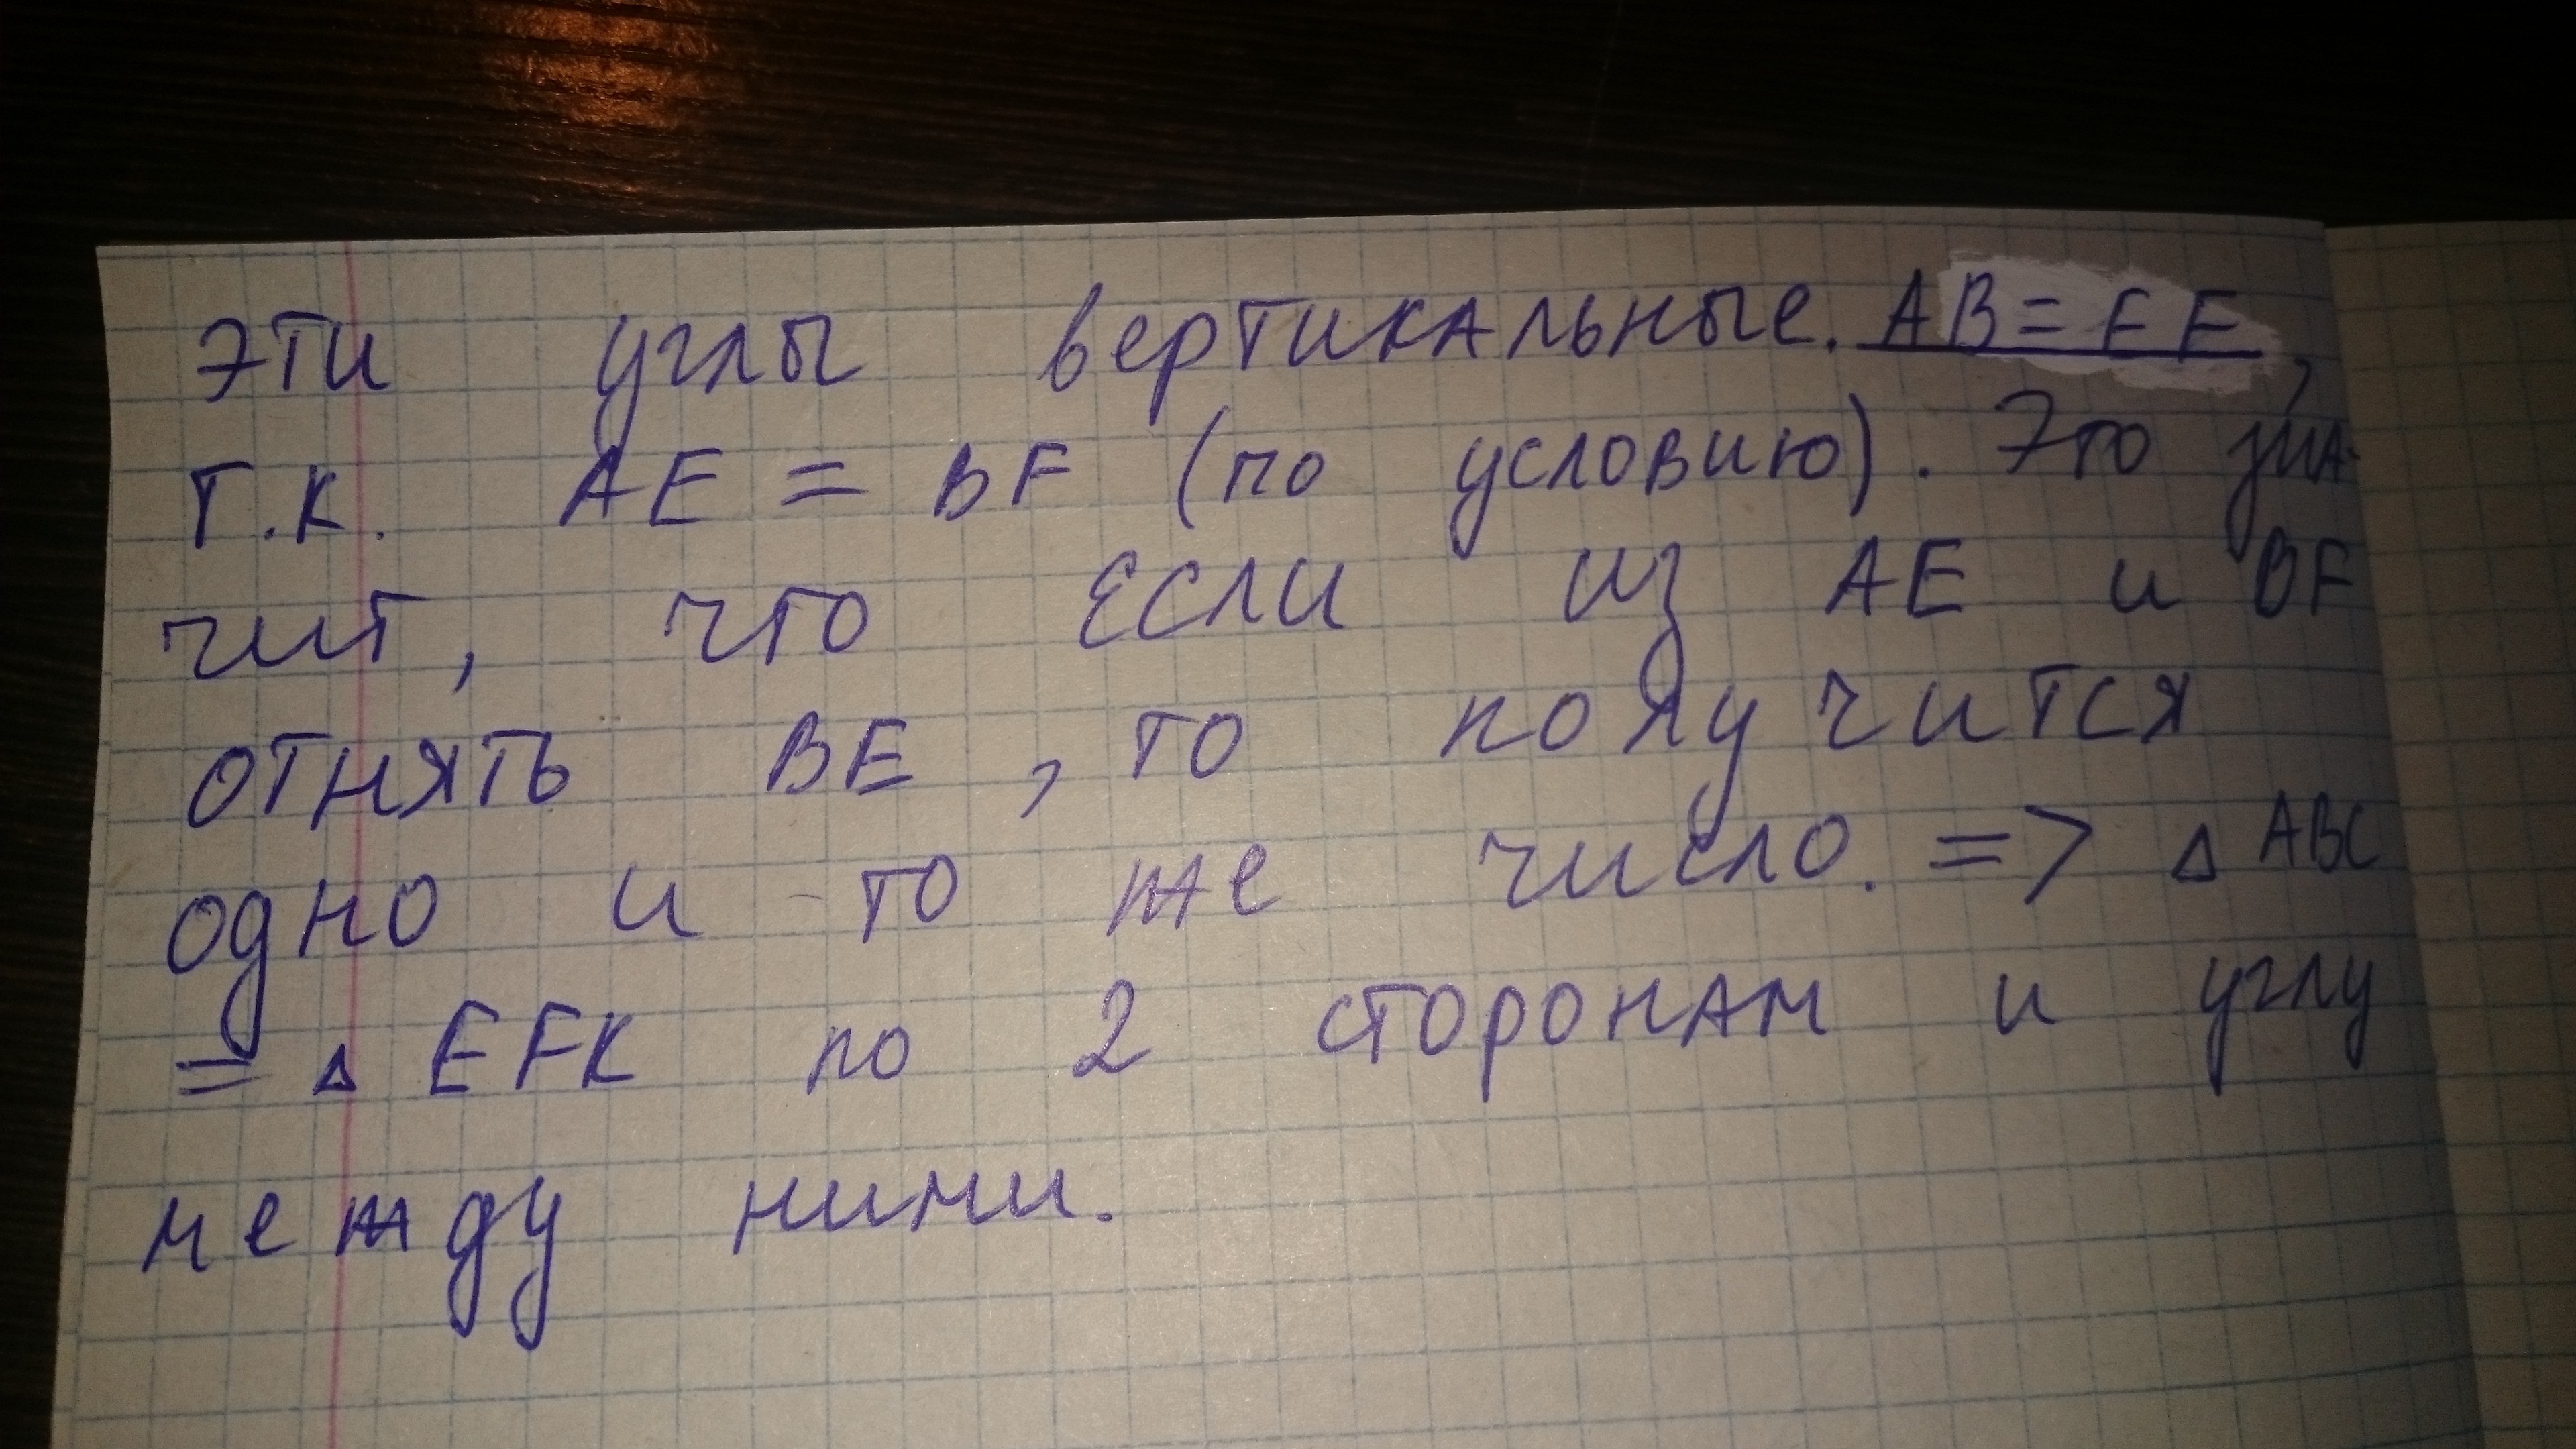 эти углы вертикальные. AB = EF,
т.к. AE = BF (по условию). Это зна-
чит, что если из AE и BF
отнять BE, то получится
одно и то же число. => △ ABC
= △ EFK по 2 сторонам и углу
между ними.